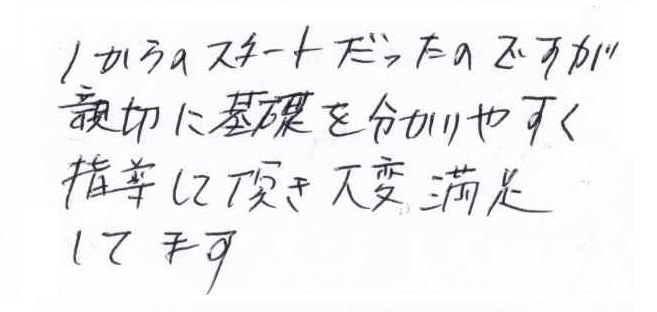 1からのスタートだったのですが
親切に基礎を分かりやすく
指導して頂き大変満足
してます